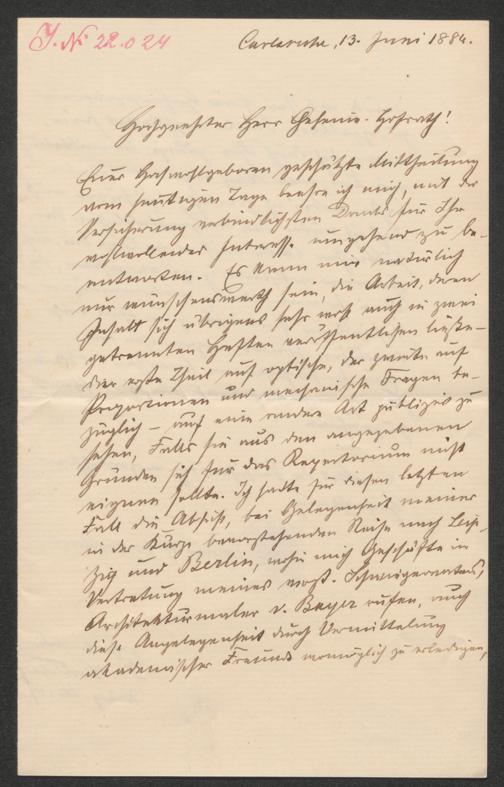 J. № 22.024
Carlsruhe, 13. Juni 1884.
Hochgeehrter Herr Geheime-Hofrath!
Euer Hochwohlgeboren geschätzte Mittheilung
vom heutigen Tage beehre ich mich, mit der
Versicherung verbindlichsten Danks für Ihr
wohlwollendes Interesse umgehend zu be-
antworten. Es kann mir natürlich
nur wünschenswerth sein, die Arbeit, deren
Inhalt sich übrigens sehr wohl auch in zwei
getrennten Heften veröffentlichen ließe –
der erste Theil auf optische, der zweite auf
Proportionen und mechanische Fragen be-
züglich – auf eine andere Art publizirt zu
sehen, falls sie aus den angegebenen
Gründen sich für das Repertorium nicht
eignen sollte. Ich hatte für diesen letzten
Fall die Absicht, bei Gelegenheit meiner
in der Kürze bevorstehenden Reise nach Leip-
zig und Berlin, wohin mich Geschäfte in
Vertretung meines Schwiegervaters,
Architekturmaler v. Bayer rufen, auch
diese Angelegenheit durch Vermittelung
akademischer Freunde womöglich zu erledigen,